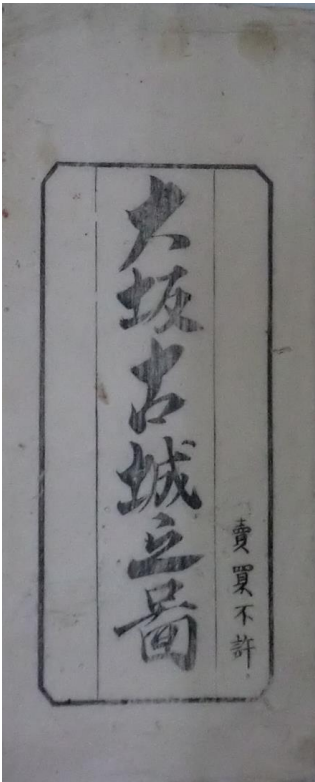 大坂古城之啚
賣買不許